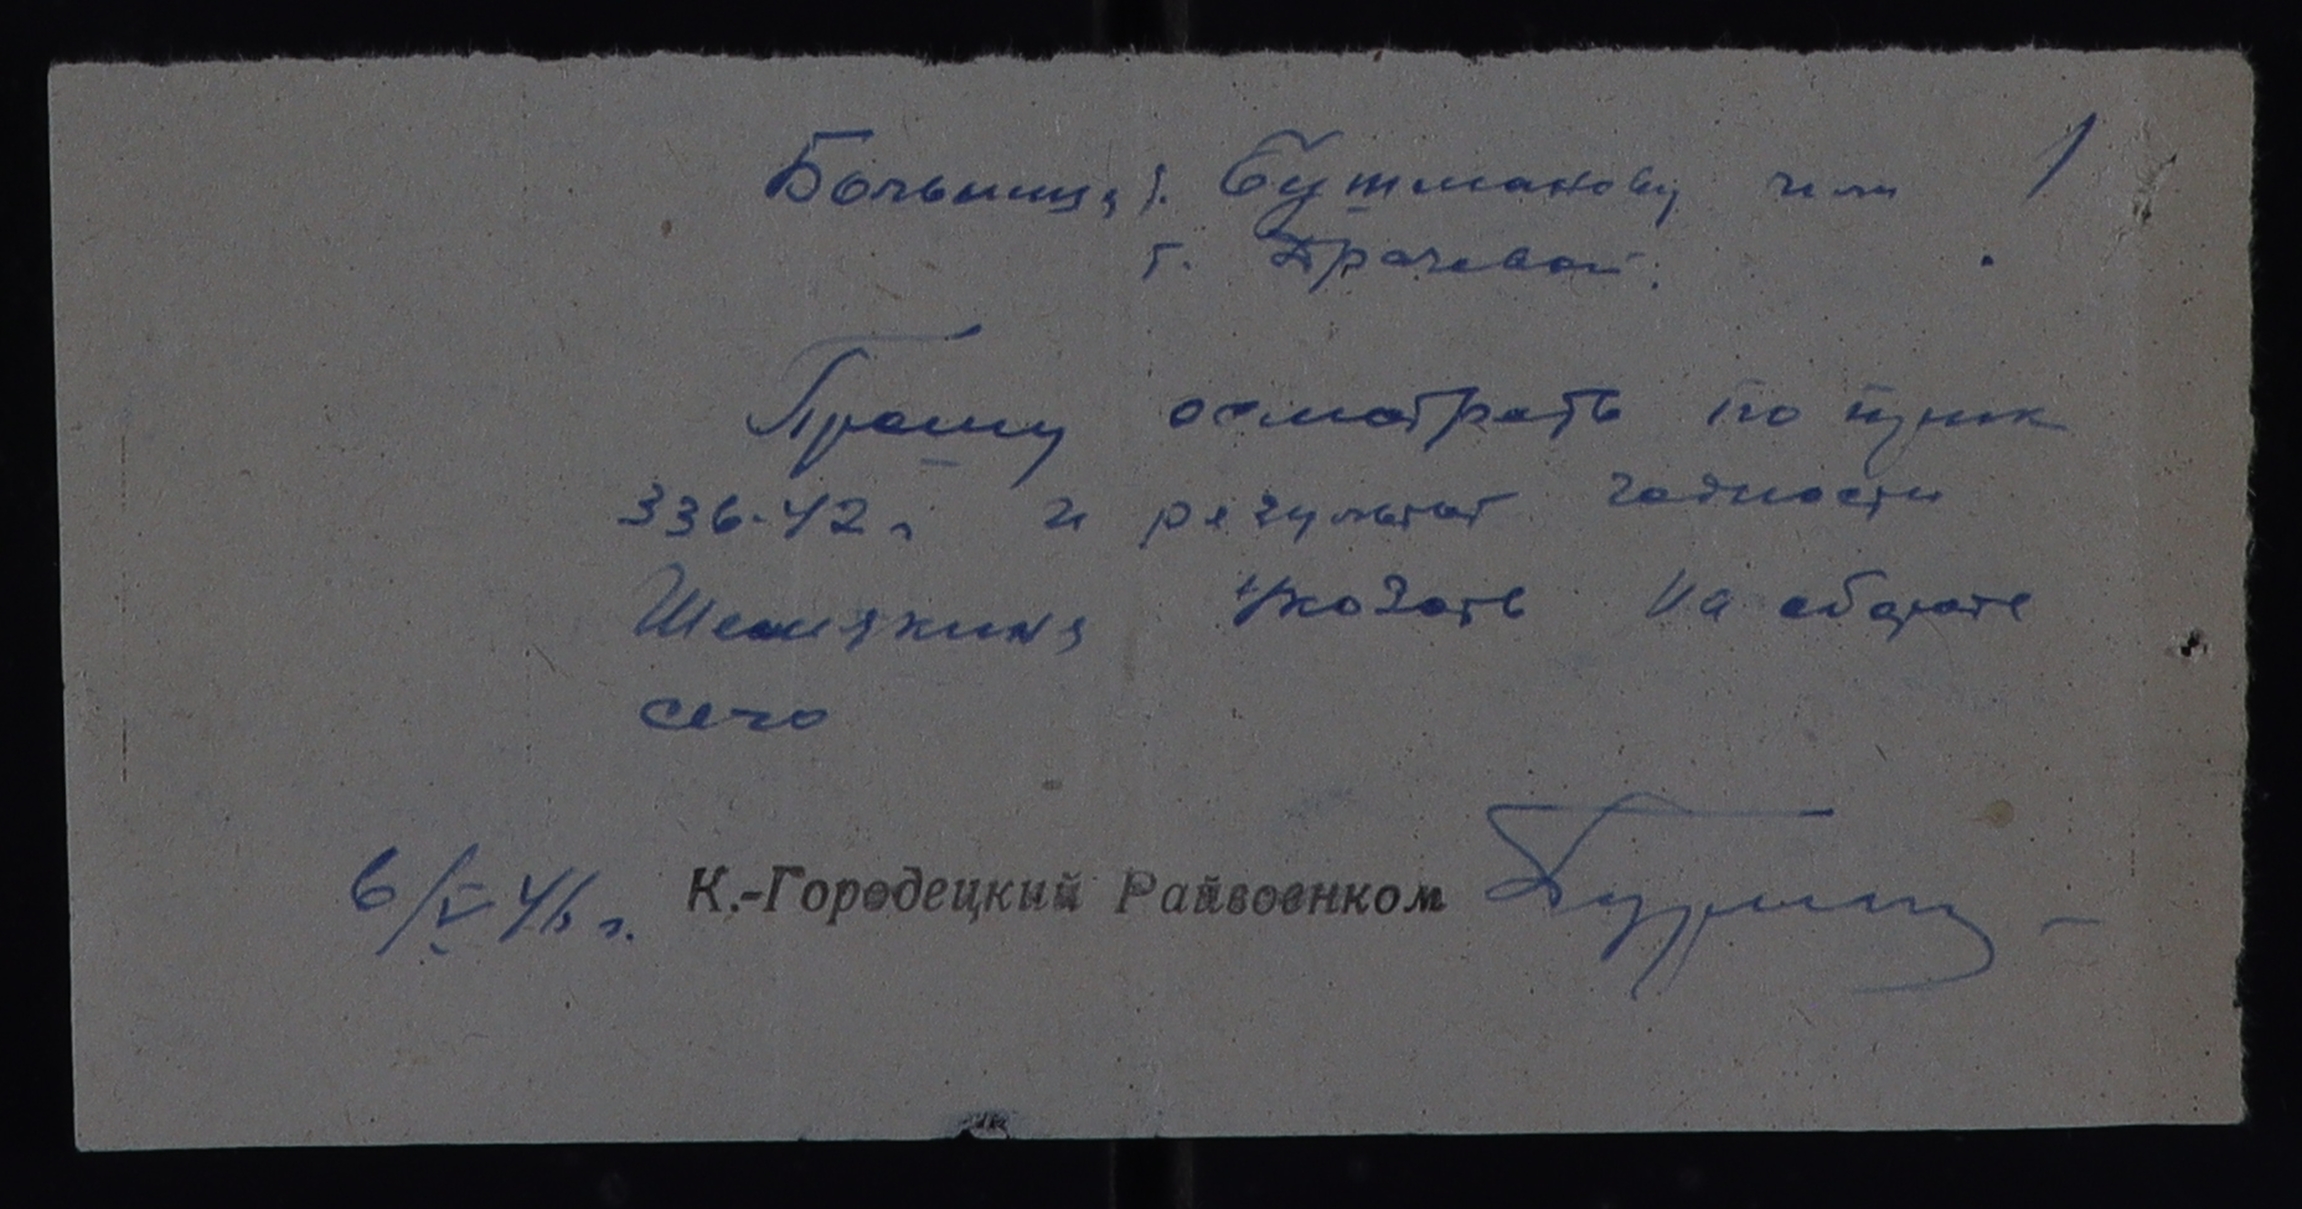 Больница т. Бутманову или 1
т. Драчевой.
Прошу осмотреть по пунк
336-42 г и результат годности
Шемякина указать на обороте
сего
6/V 46 г. К.-Городецкий Райвоенком